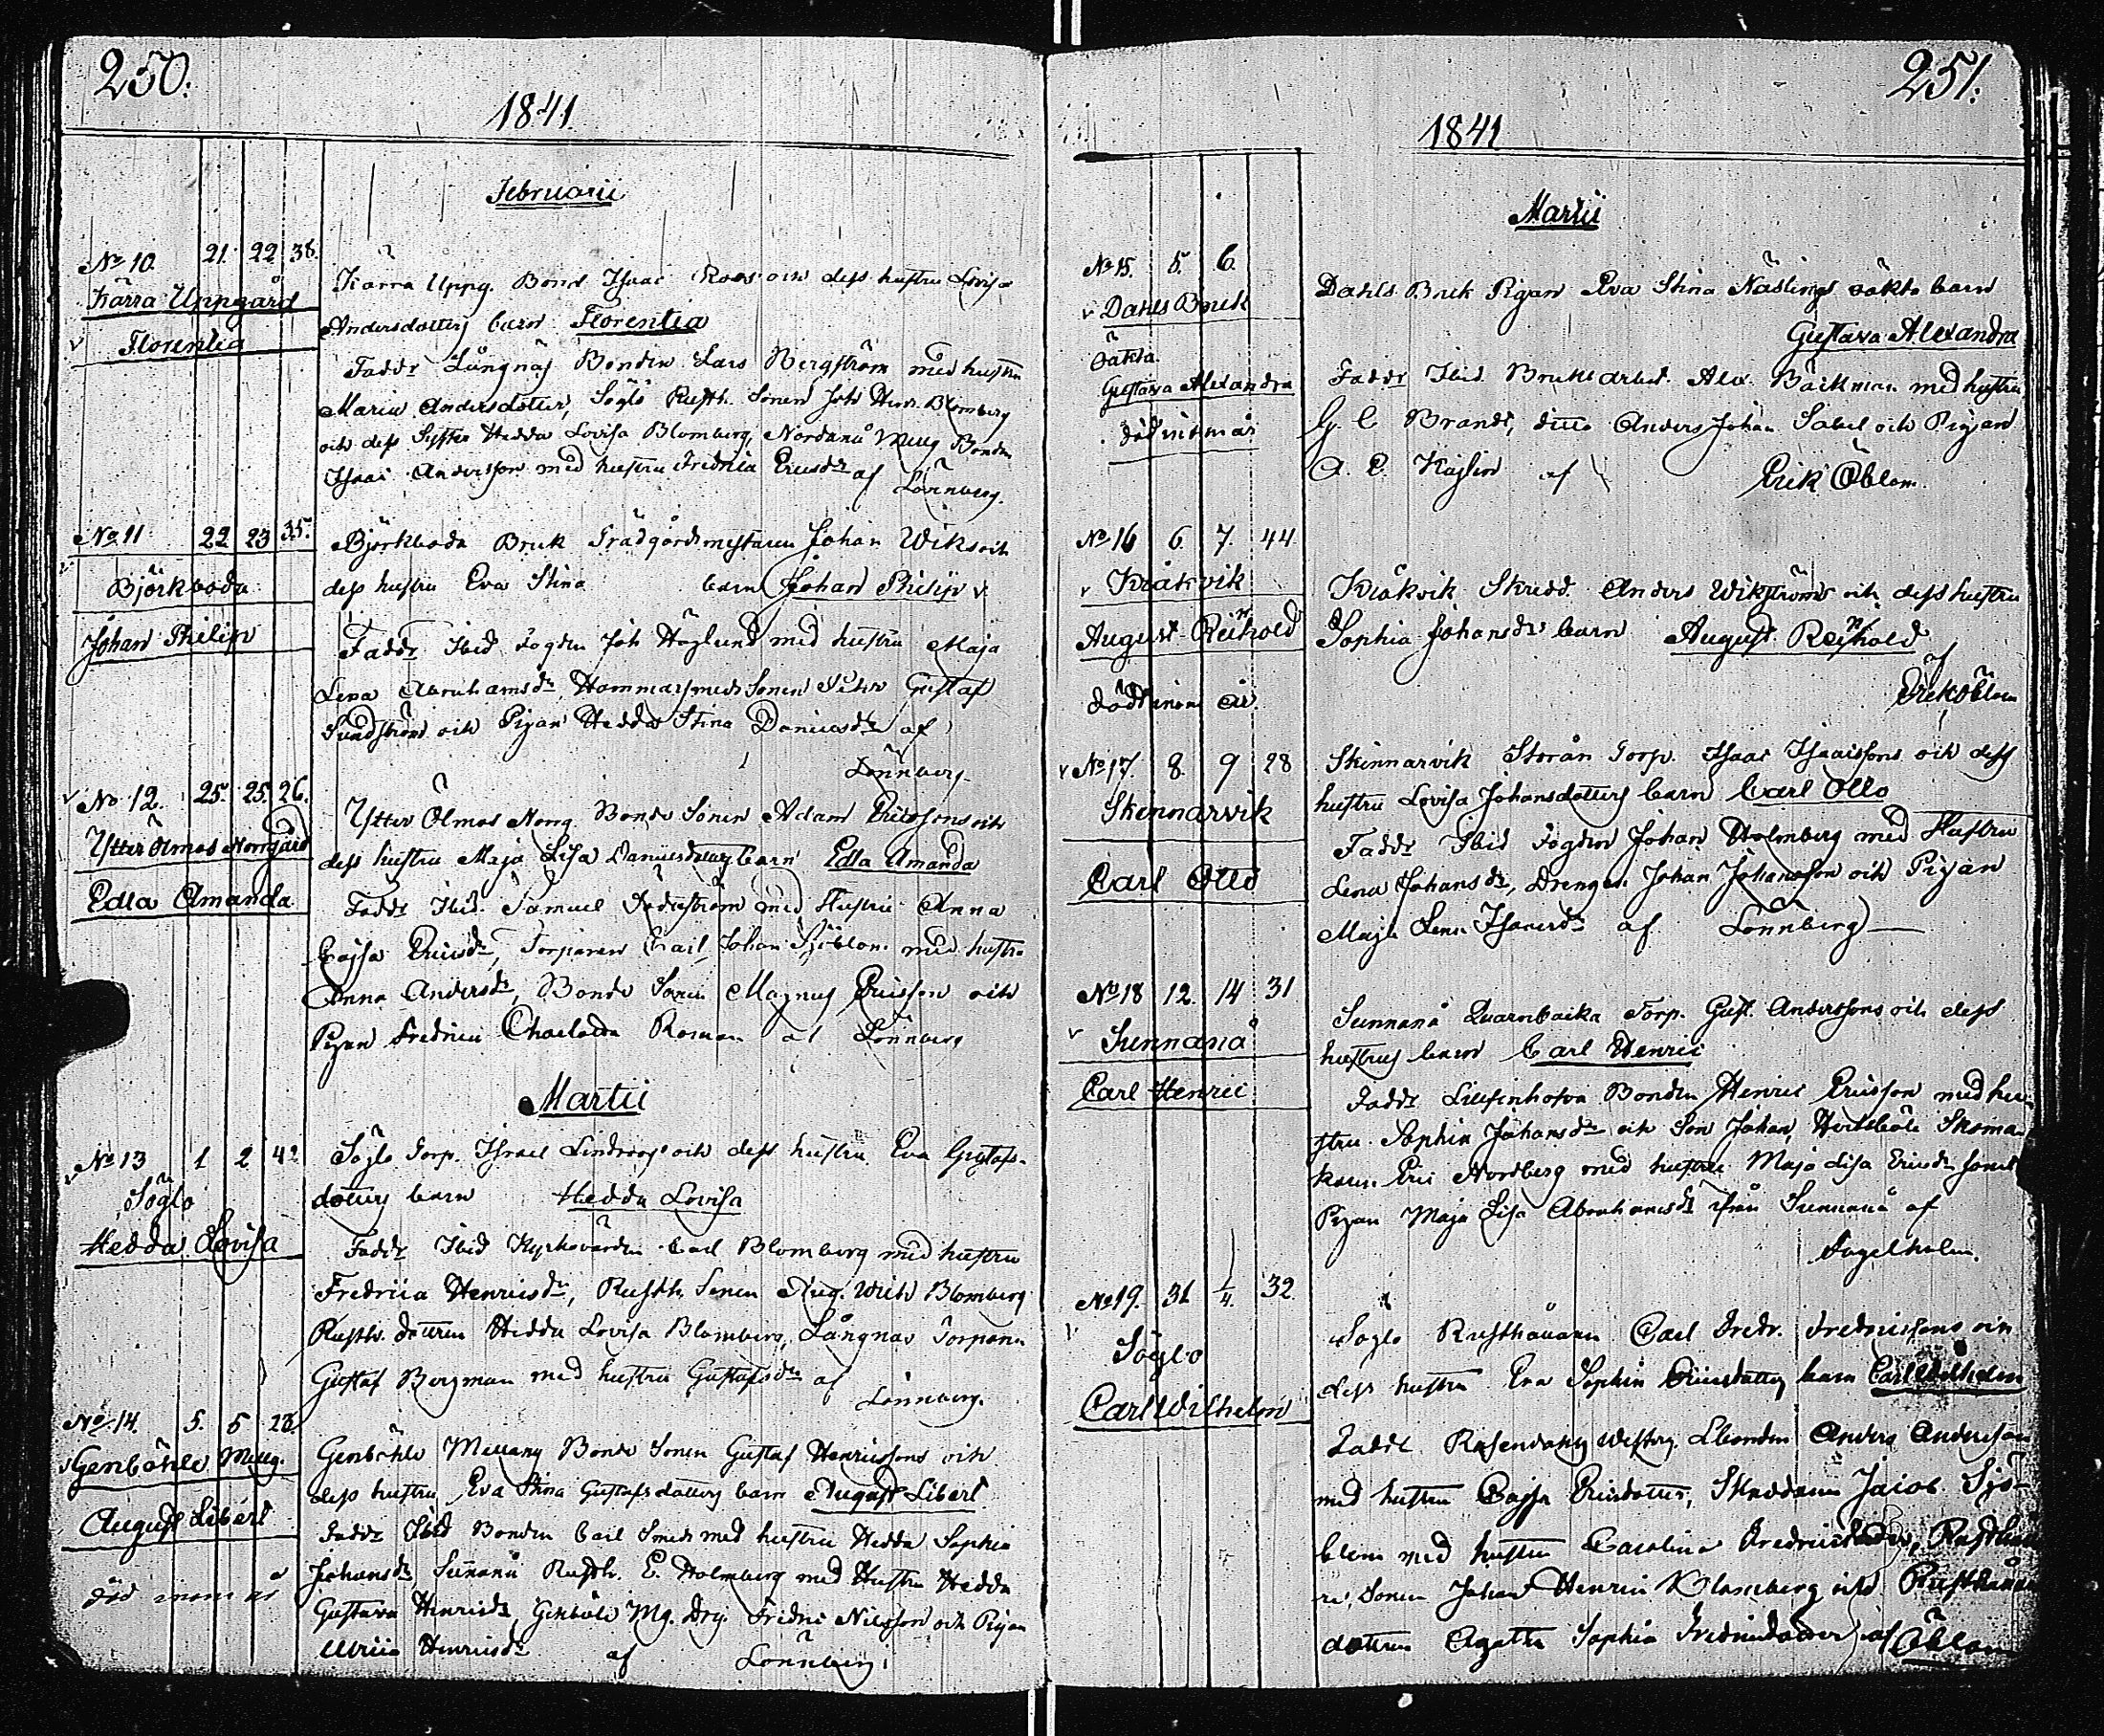 250.
1841.
Februarii
No 10. 21. 22. 38.
Kärra Uppgård
Florentia
Kärra Uppg. Bond. Isaac Roos och dess hustru Lovisa
Andersdotters barn Florentia
Faddr Långnäs Bonden Lars Bergström med hustru
Maria Andersdotter, Söglö Rusth. Sonen Joh. Henr. Blomberg
och dess Syster Hedda Lovisa Blomberg, Nordanå Bonden
Isaac Andersson med hustru Fredrica Ericsdr af
Lönnberg.
No 11 22 23 35.
Björkboda
Johan Philip
Björkboda Bruk Trädgårdsmästaren Johan Wiks och
dess hustru Eva Stina barn Johan Philip
Faddr Ibid Fogden Joh Höglund med hustru Maja
Lena Abrahamsdr, Hammarsmeds Sonen Gustaf
Sundström och Pigan Hedda Stina Danielsdr af
Lönnberg
No 12. 25. 25. 26.
Ytter Ölmos Norrgård
Edla Amanda
Ytter Ölmos Norrg. Bonde Sonen Adam Ericssons och
dess hustru Maja Lisa Danielsdotters barn Edla Amanda
Faddr Ibid. Samuel Söderström med Hustru Anna
Cajsa Ericsdr, Torparen Carl Johan Sjöblom med hustru
Anna Andersdr, Bonde Sonen Magnus Ericsson och
Pigan Fredrica Charlotta Roman af Lönnberg
Martii
No 13 1 2 42
Söglö
Hedda Lovisa
Söglö Torp. Israel Lindroos och dess hustru Eva Gustafs-
dotters barn Hedda Lovisa
Faddr Ibid Kyrkovärden Carl Blomberg med hustru
Fredrica Henricsdr, Rusth. Sonen Aug. Wilh Blomberg
Rusth. dottren Hedda Lovisa Blomberg, Långnäs Torparen
Gustaf Bergman med hustru Gustafsdr af
Lönnberg.
No 14. 5. 5 28.
Genböhle Mellg.
August Libert
död inom år
Genböhle Mellang Bonde Sonen Gustaf Henricssons och
dess hustru Eva Stina Gustafsdotters barn August Libert
Faddr Ibid Bonden Carl Smeds med hustru Hedda Sophia
Johansdr Sunnanå Rusth. E. Holmberg med Hustru Hedda
Gustava Henricsdr, Genböle Mg. Drg. Fredric Nilsson och Pigan
Ulrica Henricsdr af Lönnberg.
251.
1841
Martii
No 15. 5. 6.
Dahls Bruk
oäkta
Gustava Alexandra
död inom år
Dahls Bruk Pigan Eva Stina Näslings oäkta barn
Gustava Alexandra
Faddr Ibid. Bruks arbet. Alex. Bäckman med hustru
G. C Brandt, ditto Anders Johan Sabel och Pigan
A. C. af Erik Öblom.
No 16 6. 7. 44
Kråkvik
August Reinhold
död inom år.
Kråkvik Skredd. Anders Wikströms och dess hustru
Sophia Johansdr barn August Reinhold
af
Erik Öblom
No 17. 8. 9 28
Skinnarvik
Carl Otto
Skinnarvik Storån Torp. Isaac Isaacssons och dess
hustru Lovisa Johansdotters barn Carl Otto
Faddr Ibid Fogden Johan Holmberg med Hustru
Lena Johansdr, Drengen Johan Johansson och Pigan
Maja Lena Isacsdr af Lönnberg
No 18 12. 14 31
Sunnanå
Carl Henric
Sunnanå Quarnbacka Torp. Gust. Anderssons och dess
hustrus barn Carl Henric
Faddr Bonden Henric Ericsson med hu-
stru Sophia Johansdr och Son Johan, Skoma-
karn Eric Nordberg med hustru Maja Lisa Ericsdr samt
Pigan Maja Lisa Abrahamsdr ifrån Sunnanå af
Fagelholm.
No 19. 31 1/4. 32.
Söglö
Carl Wilhelm
Söglö Rusthållaren Carl Fredr. Fredricssons och
dess hustru Eva Sophia Ericsdotters barn Carl Wilhelm
Faddr Rosendahl Westerg. Anders Andersson
med hustru Cajsa Ericsdotter, Skreddaren Jacob Sjö-
blom med hustru Carolina Fredricsdotter, Rusthålla-
re Sonen Johan Henric Blomberg och Rusthållare
dottren Agatha Sophia Fredricsdotter af Öblom